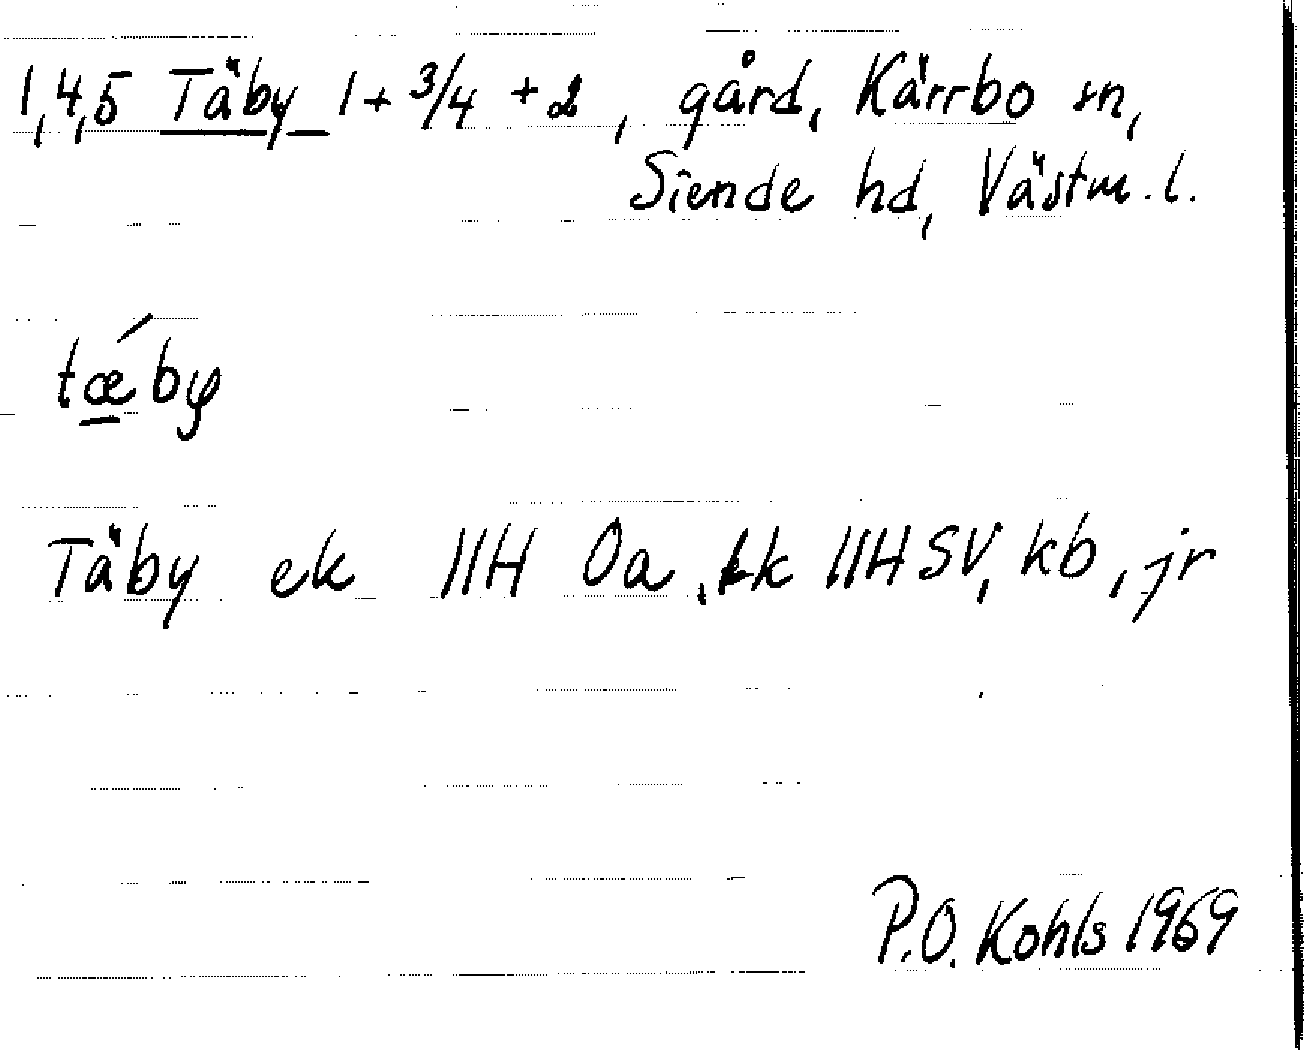 1,4,5 Täby 1 + 3/4 + 2, gård, Kärrbo sn,
Siende hd, Västm. l.
tǽby
Täby ek 11H 0a, kk 11HSV, kb, jr
P.O. Kohls 1969